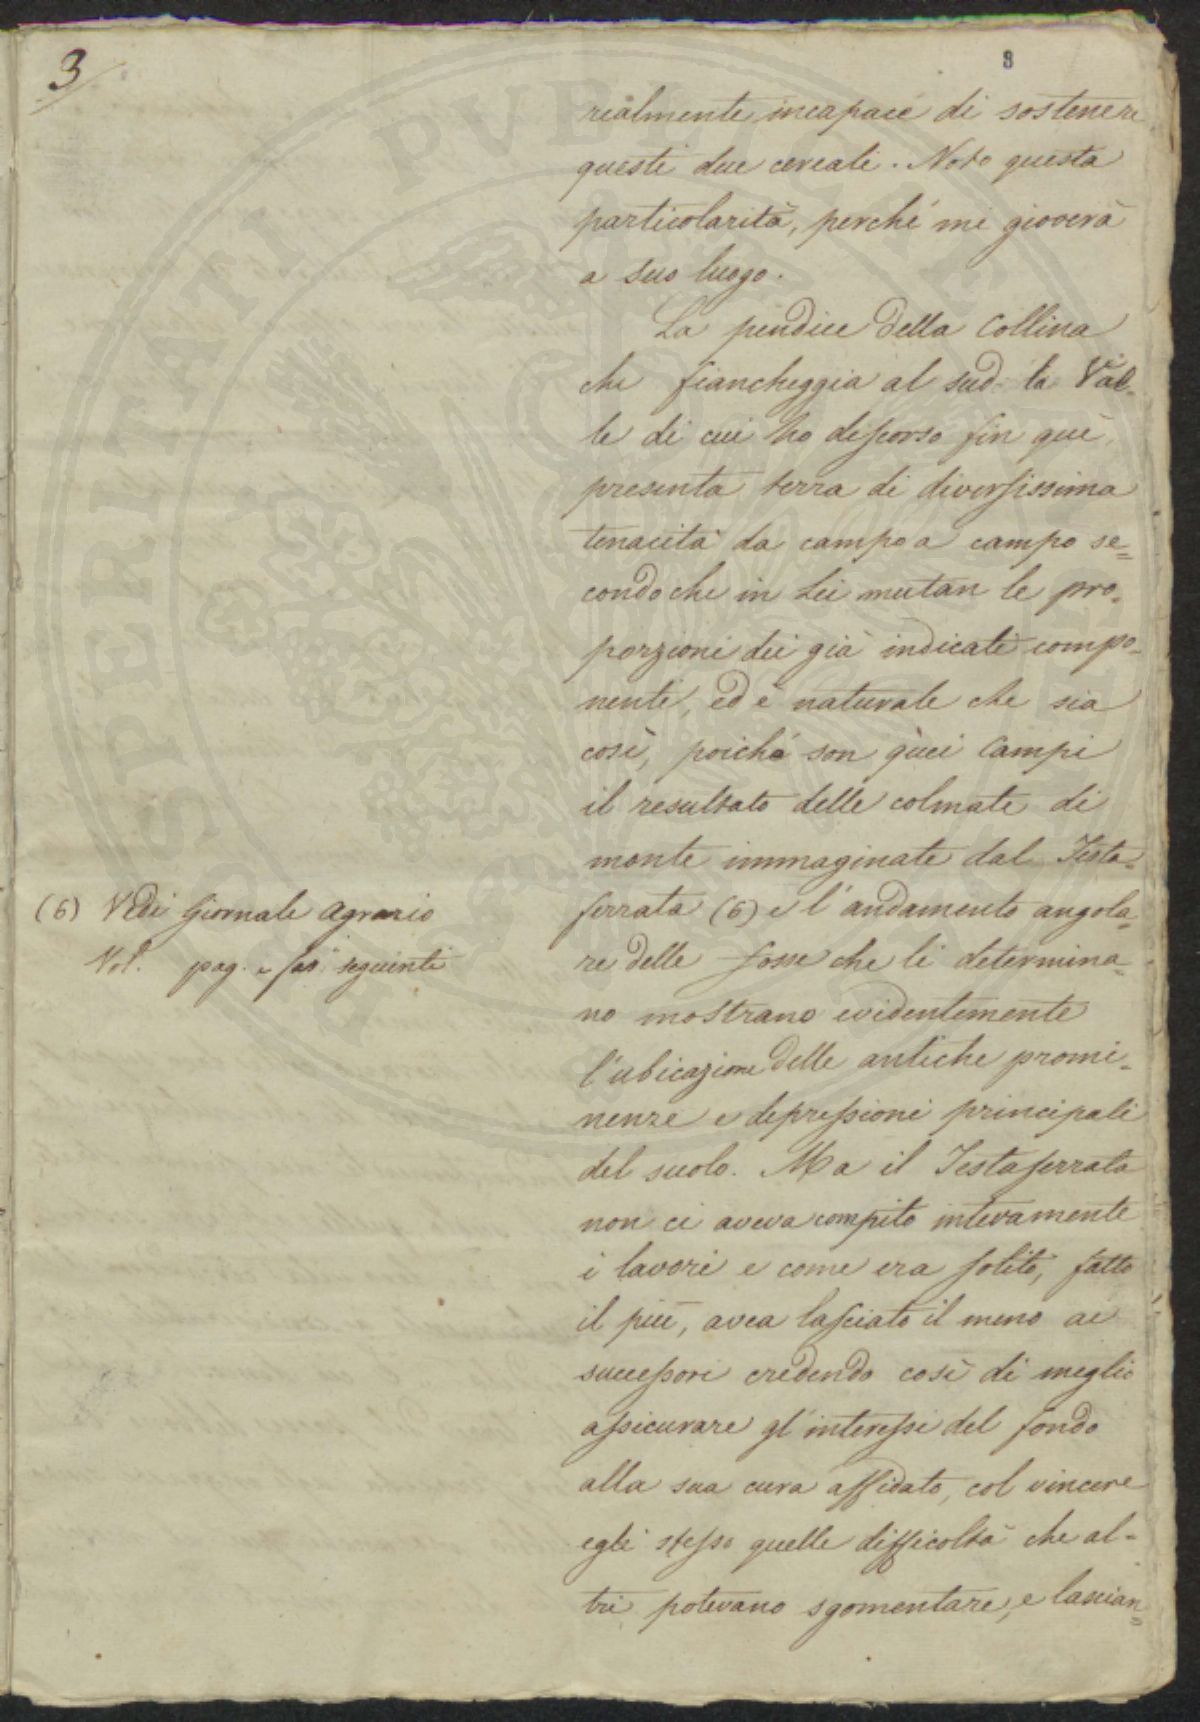 3
3
realmente incapace di sostenere
questi due cereali. Noto questa
particolarità, perché mi gioverà
a suo luogo.
La pendice della Collina
che fiancheggia al sud la Val-
le di cui ho discorso fin quì,
presenta terra di diversissima
tenacità da campo a campo se=
condo che in Lei mutan le pro-
porzioni dei già indicati compo-
nenti, ed è naturale che sia
così, poiché son quei Campi
il resultato delle colmate di
monte immaginate dal Testa-
ferrata (6) e l'andamento angola=
re delle fosse che li determina=
no mostrano evidentemente
l'ubicazione delle antiche promi-
nenze e depressioni principali
del suolo. Ma il Testaferrata
non ci aveva compito interamente
i lavori e come era solito, fatto
il più, avea lasciato il meno ai
successori credendo così di meglio
assicurare gl'interessi del fondo
alla sua cura affidato, col vincere
egli stesso quelle difficoltà che al-
tri potevano sgomentare, e lascian=
(6) Vedi Giornale Agrario
Vol. pag. e seguenti
PROSPERITATI PVBLICAE